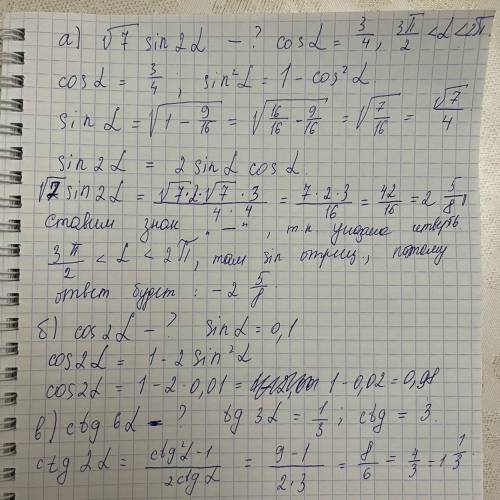 а) √7 sin 2α – ? cos α = 3/4, 3π/2 < α < 2π
cos α = 3/4 ; sin²α = 1 – cos²α.
sin α = √(1 – 9/16) = √(16/16 – 9/16) = √(7/16) = √7/4
sin 2α = 2 sin α cos α.
√7 sin 2α = (√7·2·√7·3)/(4·4) = (7·2·3)/16 = 42/16 = 2 5/8
ставим знак „–“, т.к четверть
3π/2 < α < 2π, там sin отриц., поэтому
ответ будет : –2 5/8.
б) cos 2α – ? sin α = 0,1
cos 2α = 1 – 2 sin²α
cos 2α = 1 – 2·0,01 = 1 – 0,02 = 0,98
в) ctg 6α – ? tg 3α = 1/3 ; ctg = 3.
ctg 2α = (ctg²α – 1)/(2ctg α) = (9 – 1)/(2·3) = 8/6 = 4/3 = 1 1/3